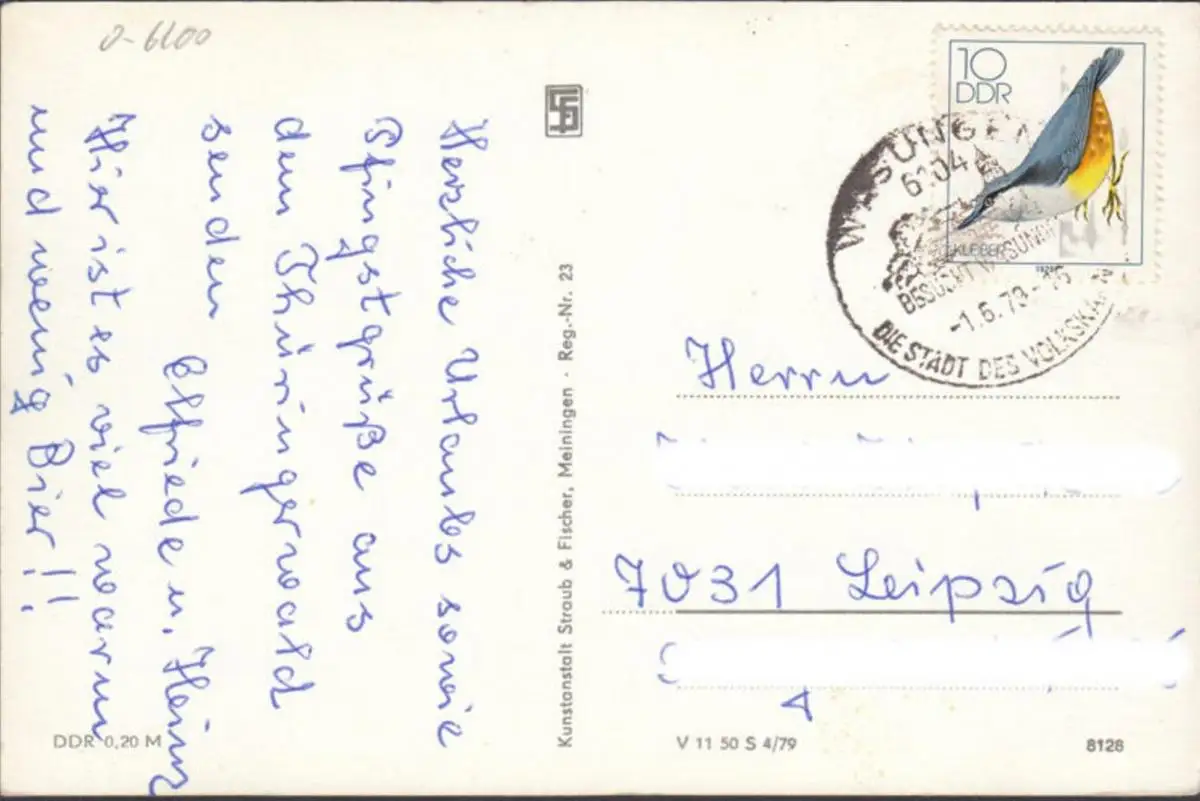 0-6100
Herzliche Urlaubs sowie
Pfingstgrüße aus
dem Thüringerwald
senden
Elfriede u. Heinz
Hier ist es viel warm
und wenig Bier!!
DDR 0,20 M
Kunstanstalt Straub & Fischer, Meiningen · Reg.-Nr. 23
10
DDR
KLEIBER
WASUNGEN
6104
BESUCHT WASUNGEN
-1.6.79-16
DIE STADT DES VOLKSKA
Herrn
7031 Leipzig
V 11 50 S 4/79
8128